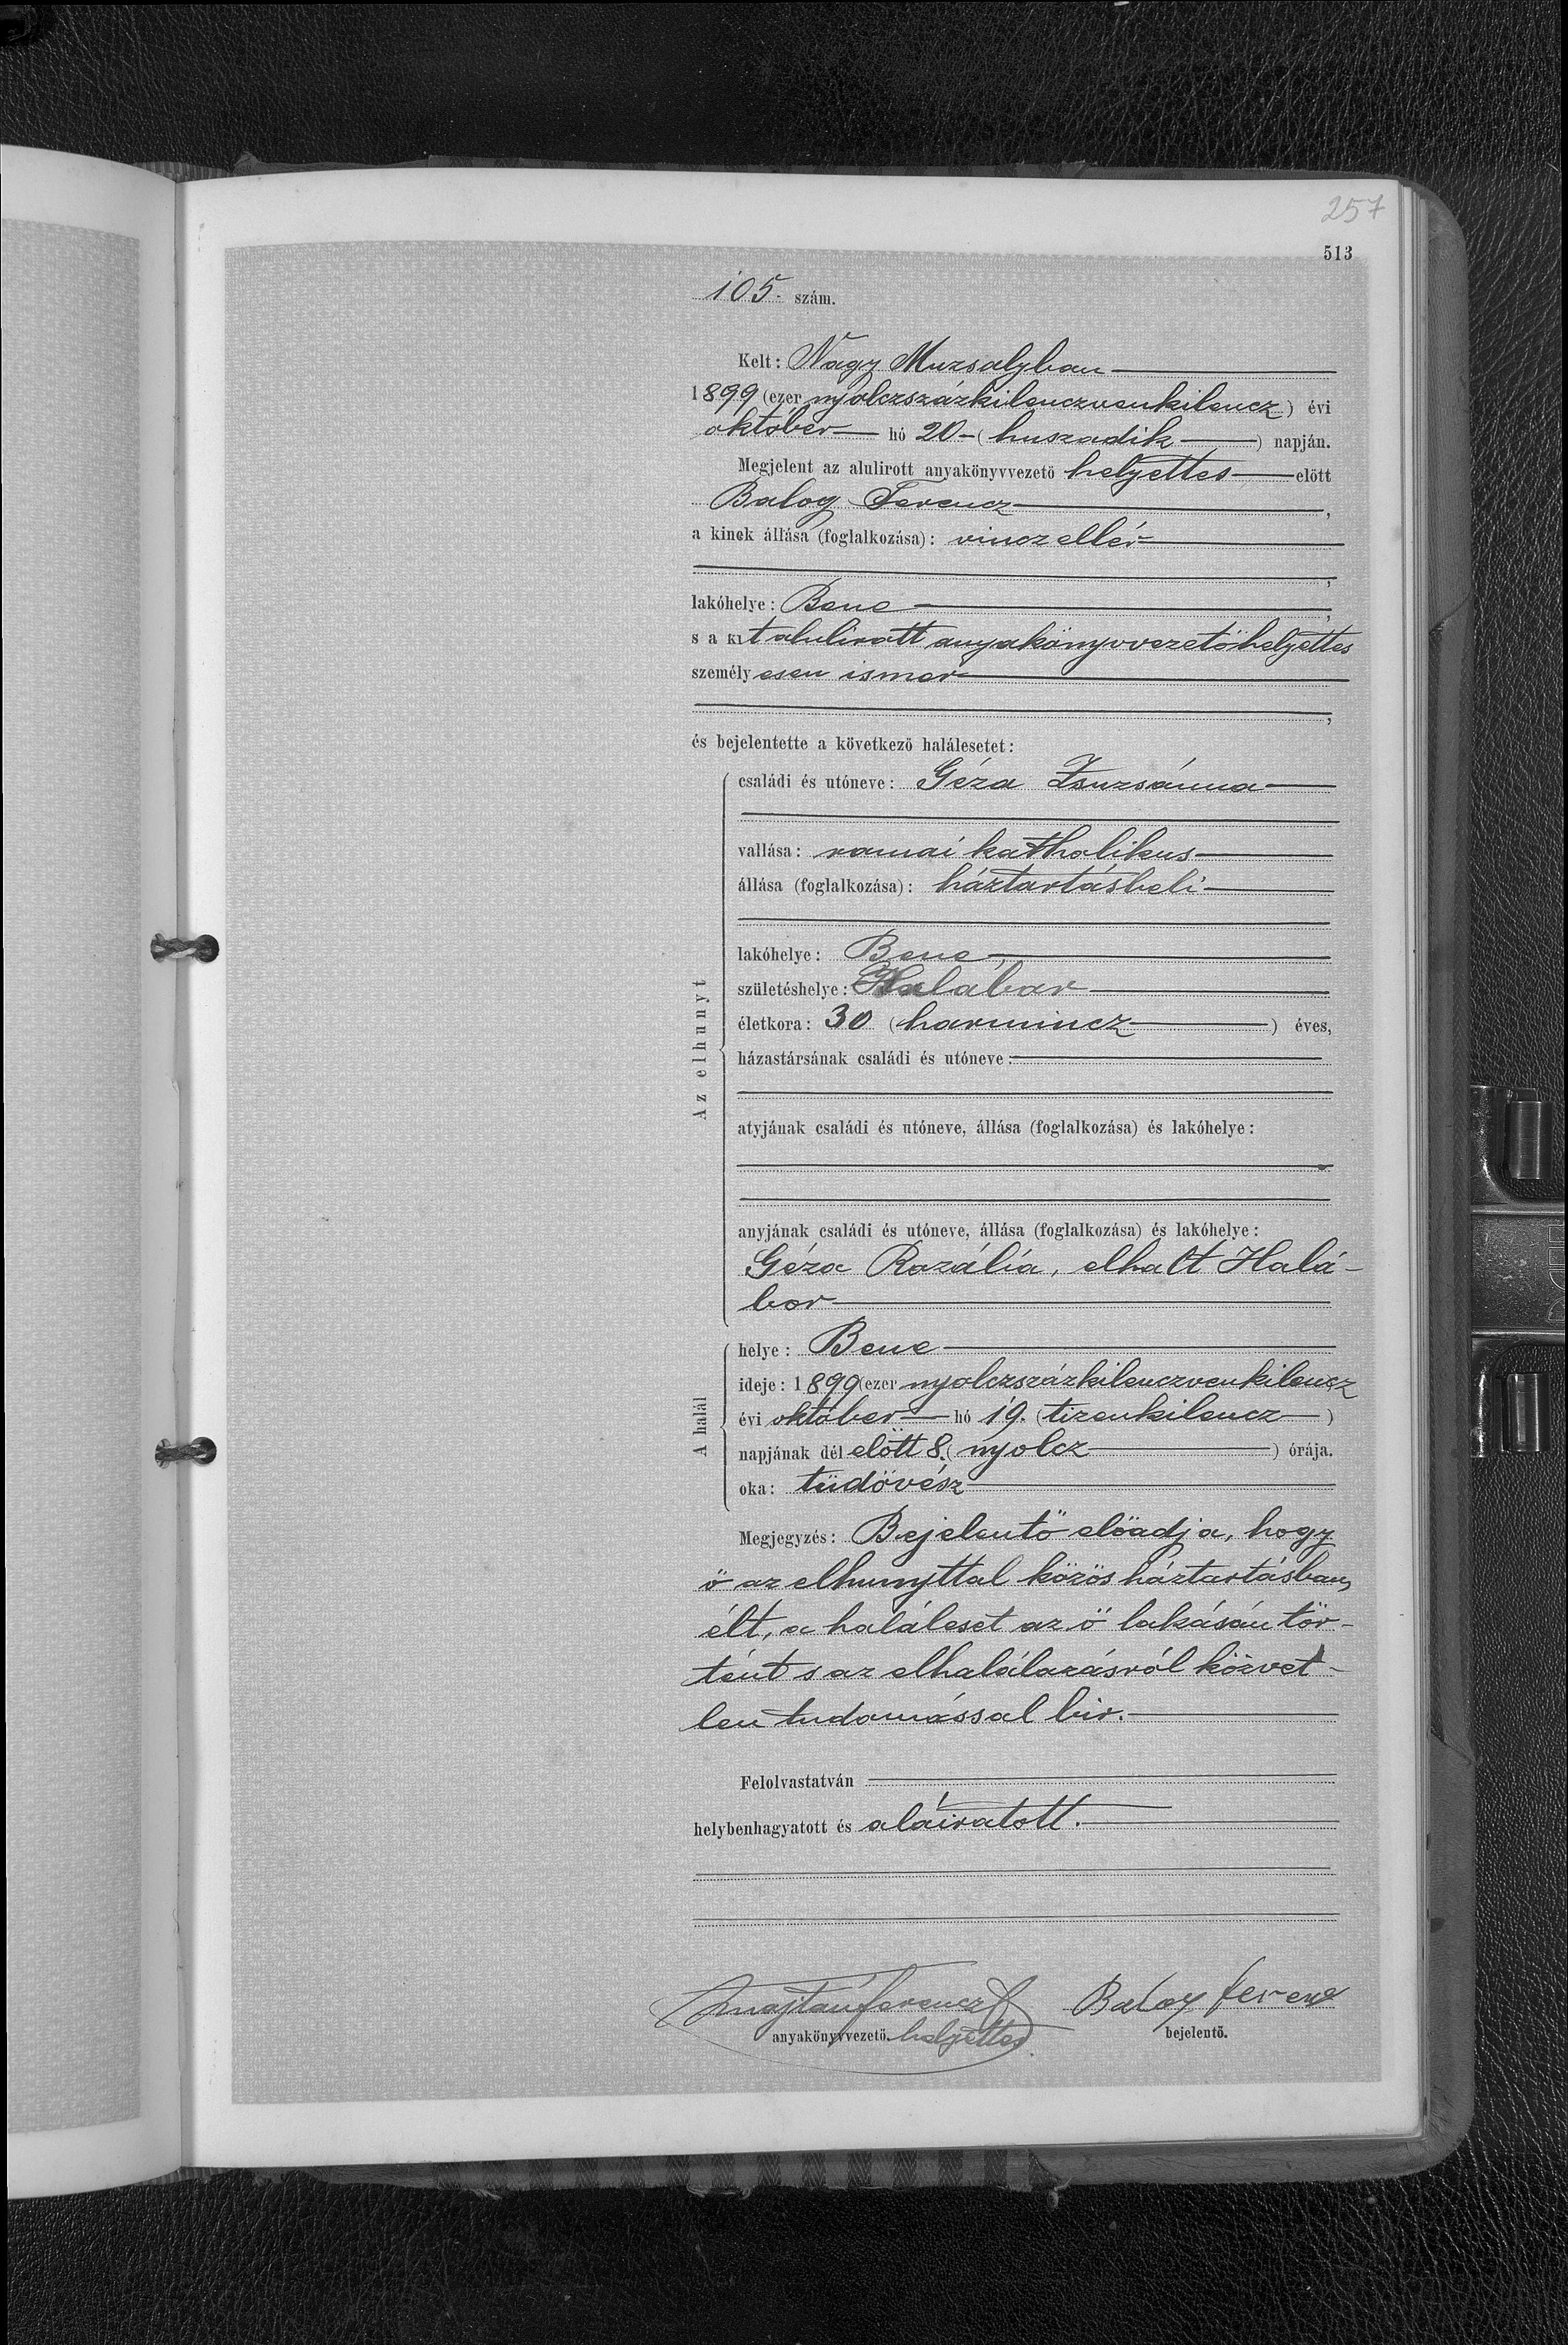 257
513
105. szám.
Kelt: Nagy Muzsalyban
1899 (ezer nyolczszázkilenczvenkilencz) évi
október hó 20 (huszadik) napján.
Megjelent az alulirott anyakönyvvezető helyettes előtt
Balog Ferencz,
a kinek állása (foglalkozása): vinczellér
,
lakóhelye: Bene,
s a kit alulirott anyakönyvvezetőhelyettes
személyesen ismer
,
és bejelentette a következő halálesetet:
Az elhunyt
családi és utóneve: Géza Zsuzsánna
vallása: romai katholikus
állása (foglalkozása): háztartásbeli
lakóhelye: Bene,
születéshelye: Halabor
életkora: 30 (harmincz) éves,
házastársának családi és utóneve:
atyjának családi és utóneve, állása (foglalkozása) és lakóhelye:
anyjának családi és utóneve, állása (foglalkozása) és lakóhelye:
Géza Rozália, elhalt Halá-
bor
A halál
helye: Bene
ideje: 1899 (ezer nyolczszázkilenczvenkilencz
évi október hó 19. (tizenkilencz)
napjának dél előtt 8. (nyolcz) órája.
oka: tüdővész
Megjegyzés: Bejelentő előadja, hogy
ő az elhunyttal közös háztartásban
élt, a haláleset az ő lakásán tör-
tént s az elhalálozásról közvet-
len tudomással bir.
Felolvastatván
helybenhagyatott és aláiratott.
Majtán Ferencz Balog Ferenc
anyakönyvvezető. helyettes bejelentő.